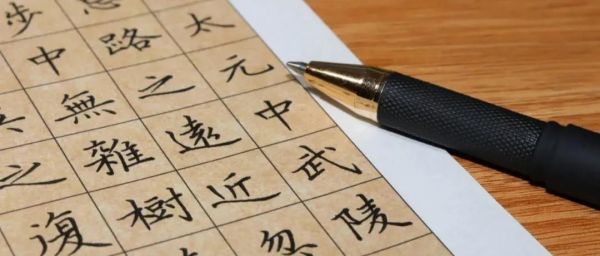 太元中武陵
忘路之遠近忽
步中無雜樹
之復